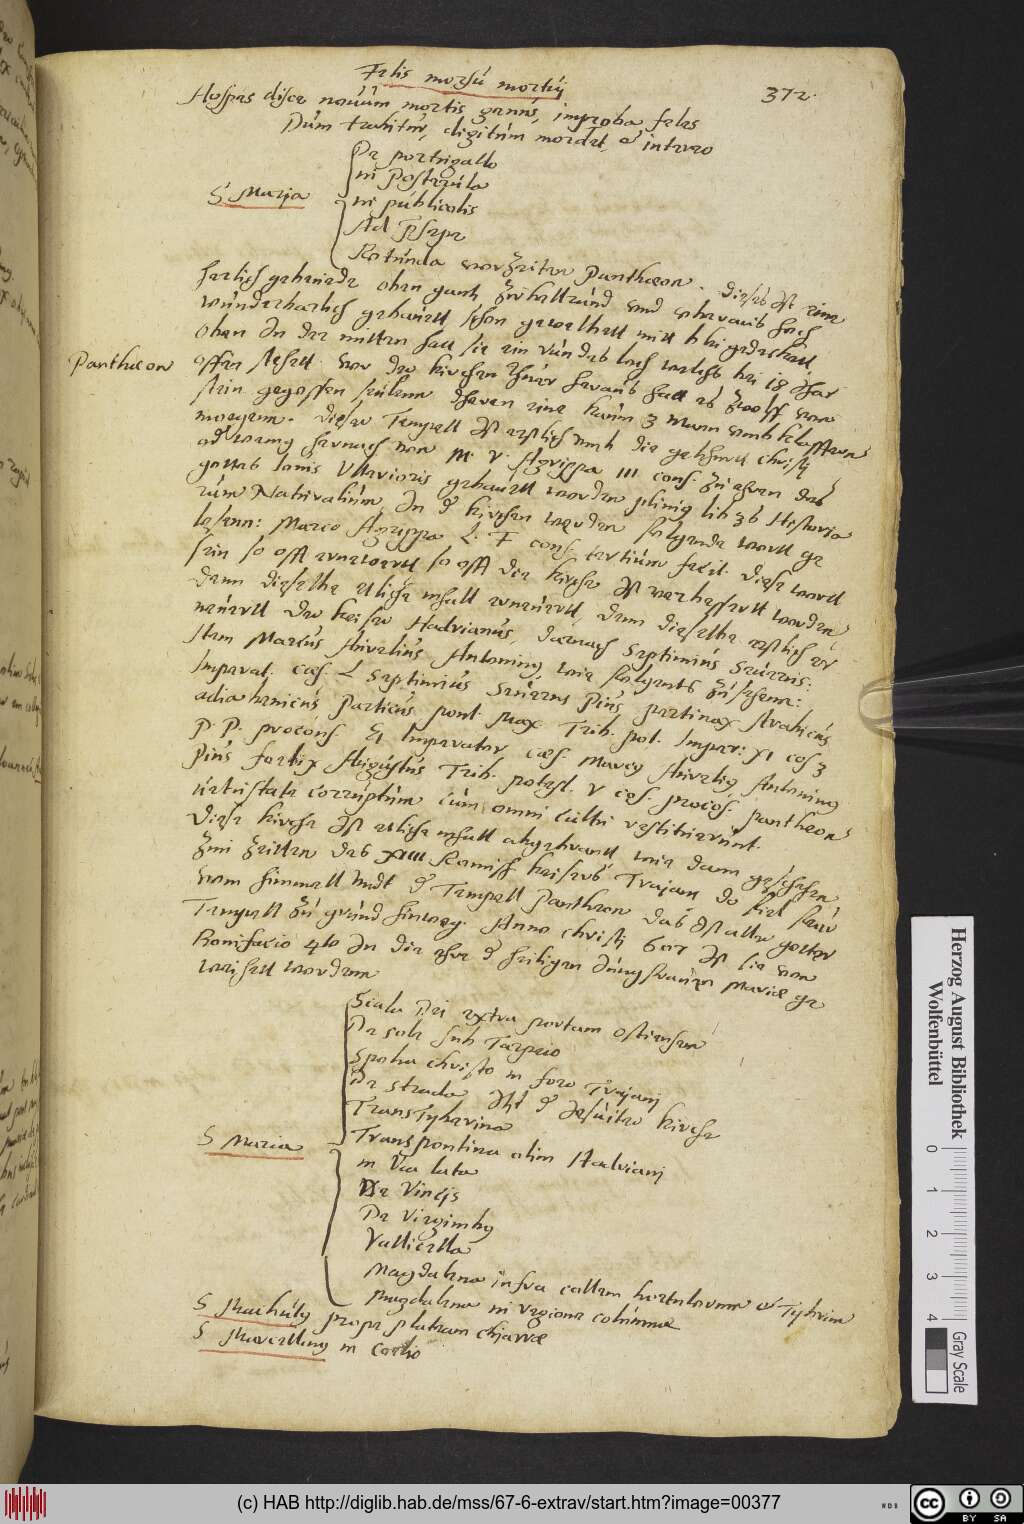 372.
Felis morsu mortuj
Hospes disce novum mortis genus, improba feles
Dum trahitur, digitum mordet, et intereo
S. Maria
De portugallo
in Posterula
in publicolis
Ad Praesepe
Rotunda vorzeiten Pantheon. dieses Ist eine
herlich gebeude oben gantz
wunderbarlich gebauett schon gewelbett mitt blei gedeckett
oben In der mitten hatt sie ein rundes loch welchs bei 18
Pantheon
offen stehett. vor der kirchen thuer heraus hatt es zwolff von
stein gegossen seulenn deren eine kaum 3 Mann umbklafftern
moegenn. dieser Tempell Ist erstlich umb die geburtt christj
M. V. Agrippa III cons. zu ehren des
gottes Iovis Ultrioris gebauett worden plinius lib 36 Historia
rum Naturalium, In der kirchen werden folgende wortt ge
lesenn: Marco Agrippa L. F cons. tertium fecit. diese wortt
sein so offt erneuertt so offt die kirche Ist verbessertt worden
dann dieselbe etliche mhall erneuertt, dann dieselbe erstlich er
neuertt der keiser Hadrianus, darnach Septimius Seuerus:
Item Marcus Aurelius Antoninus wie folgents zu sehenn:
Imperat. caes. L Septimius Seuerus Pius pertinax Arabicus
adiabenicus Particus pont. Max Trib. pot. Imper: XI cos 3
P. P. procons. Et Imperator caes. Marcus Aurelius Antoninus
Pius foelix Augustus Trib. potest. V cos. procos. pantheon
uetustate corruptum cum omni cultu restituerunt.
Diese kirche Ist etliche mhall abgebrantt wie dann geschehen
Zun zeitten des XIIII Romisch keisers Trajani do fiel feur
vom himmell undt der Tempell Pantheon das Ist aller gotter
Tempell zu grund hinweg. Anno christj 607 Ist sie von
Bonifacio 4to In die ehre der heiligen Jungfrauen Mariae ge
weihett wordenn
S Maria
Scala Dei extra portam ostiensem
De sole sub Tarpeio
Spolia christo in foro Trajanj
De strada Itzt der Jesuiter kirche
TransTyberina
Transpontina olim Hadrianj
in Via lata
De Vineis
De Virginibus
Vallicella
Magdalena infra collem hortulorum et Tybrim
Magdalena in regione columnae
S Machutus prope plateam
S Marcellinus in Coelio
Herzog August Bibliothek
Wolfenbüttel
0 1 2 3 4
Gray Scale
(c) HAB http://diglib.hab.de/mss/67-6-extrav/start.htm?image=00377
WDB
cc BY SA